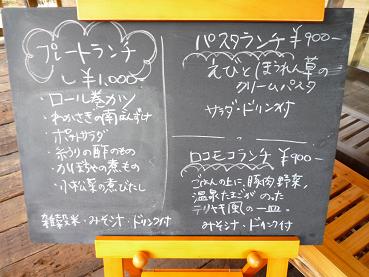 プレートランチ
¥1,000
・ロール巻カツ
・わかさぎの南ばんづけ
・ポテトサラダ
・糸うりの酢のもの
・かぼちゃの煮もの
・小松菜の煮びたし
雑穀米・みそ汁・ドリンク付
パスタランチ ¥900-
えびとほうれん草の
クリームパスタ
サラダ・ドリンク付
ロコモコランチ ¥900-
ごはんの上に、豚肉、野菜、
温泉たまごがのった
テリヤキ風の一皿。
みそ汁・ドリンク付